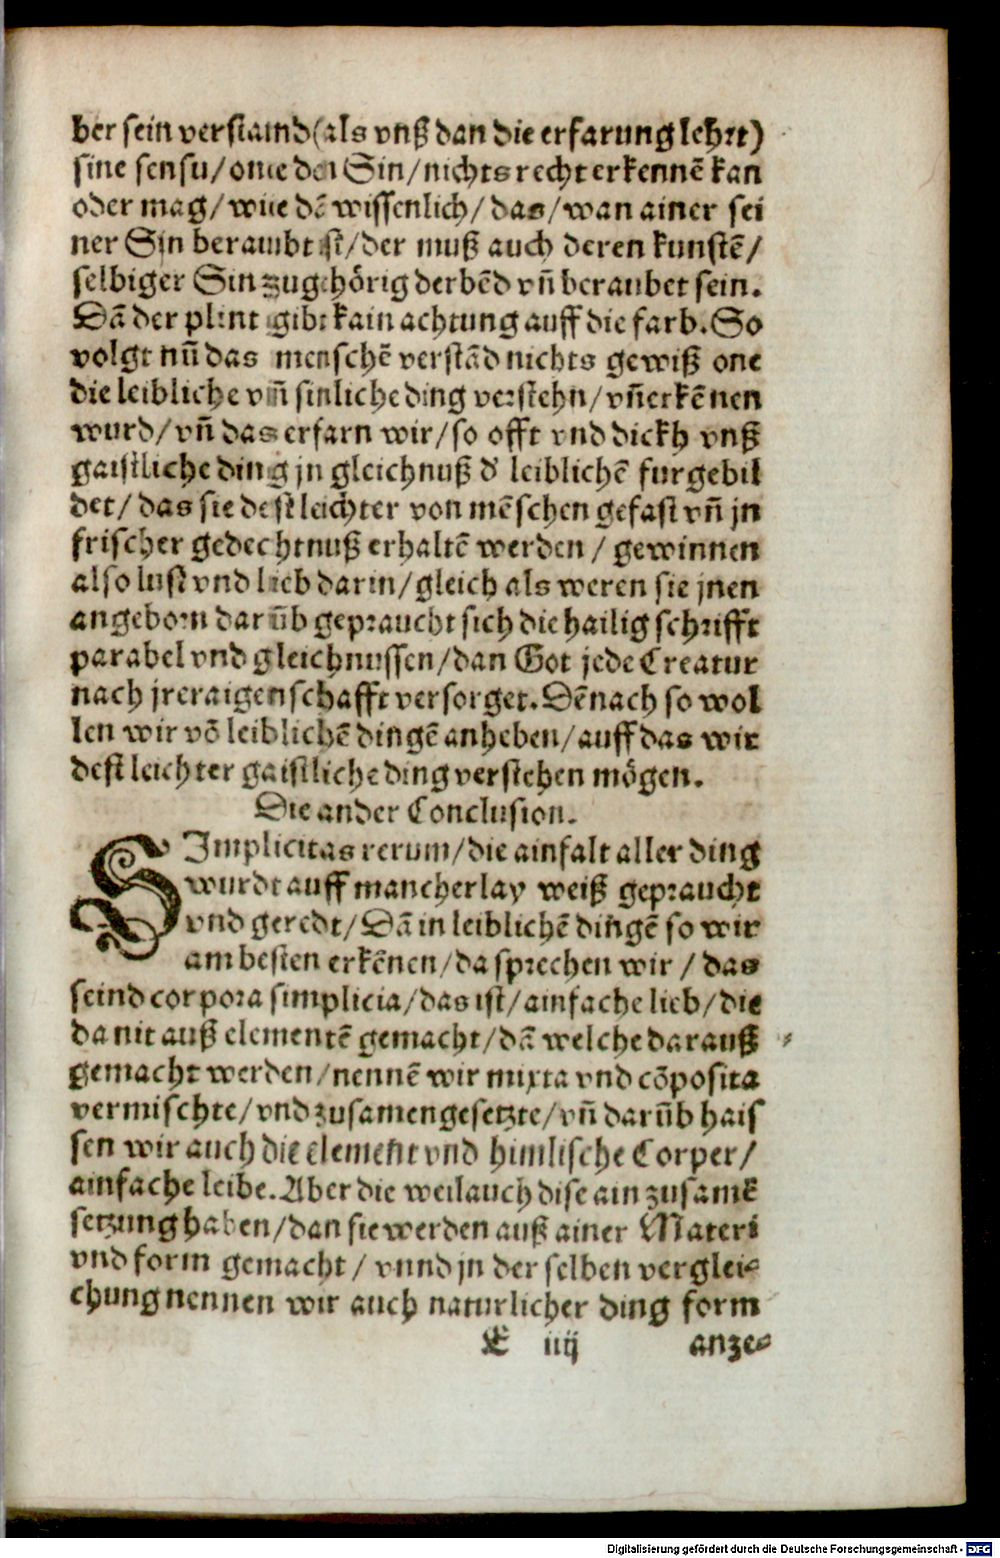 ber sein verstand (als vnß dan die erfarung lehrt)
sine sensu / one den Sin / nichts recht erkennē kan
oder mag / wiie dē wissenlich / das / wan ainer sei
ner Sin beraubt ist / der muß auch deren kunstē /
selbiger Sin zugehörig derbēd vñ beraubet sein.
Dā der plint gibt kain achtung auff die farb. So
volgt nũ das menschē verstād nichts gewiß one
die leibliche vnñ sinliche ding verstehn / vñ erkēnen
wurd / vñ das erfarn wir / so offt vnd dickh vnß
gaistliche ding jn gleichnuß d' leiblichē furgebil
det / das sie dest leichter von mēschen gefast vñ jn
frischer gedechtnuß erhaltē werden / gewinnen
also lust vnd lieb darin / gleich als weren sie jnen
angeborn darũb gepraucht sich die hailig schrifft
parabel vnd gleichnussen / dan Got jede Creatur
nach jrer aigenschafft versorget. Dēnach so wol
len wir vō leiblichē dingē anheben / auff das wir
dest leichter gaistliche ding verstehen mögen.
Die ander Conclusion.
SImplicitas rerum / die ainfalt aller ding
wurdt auff mancherlay weiß gepraucht
vnd geredt / Dā in leiblichē dingē so wir
am besten erkēnen / da sprechen wir / das
seind corpora simplicia / das ist / ainfache lieb / die
da nit auß elementē gemacht / dā welche darauß
gemacht werden / nennē wir mixta vnd cōposita
vermischte / vnd zusamengesetzte / vñ darũb hais
sen wir auch die element vnd himlische Corper /
ainfache leibe. Aber die weil auch dise ain zusamē
setzung haben / dan sie werden auß ainer Materi
vnd form gemacht / vnnd jn der selben verglei⸗
chung nennen wir auch naturlicher ding form
E iiij anze⸗
Digitalisierung gefördert durch die Deutsche Forschungsgemeinschaft - DFG